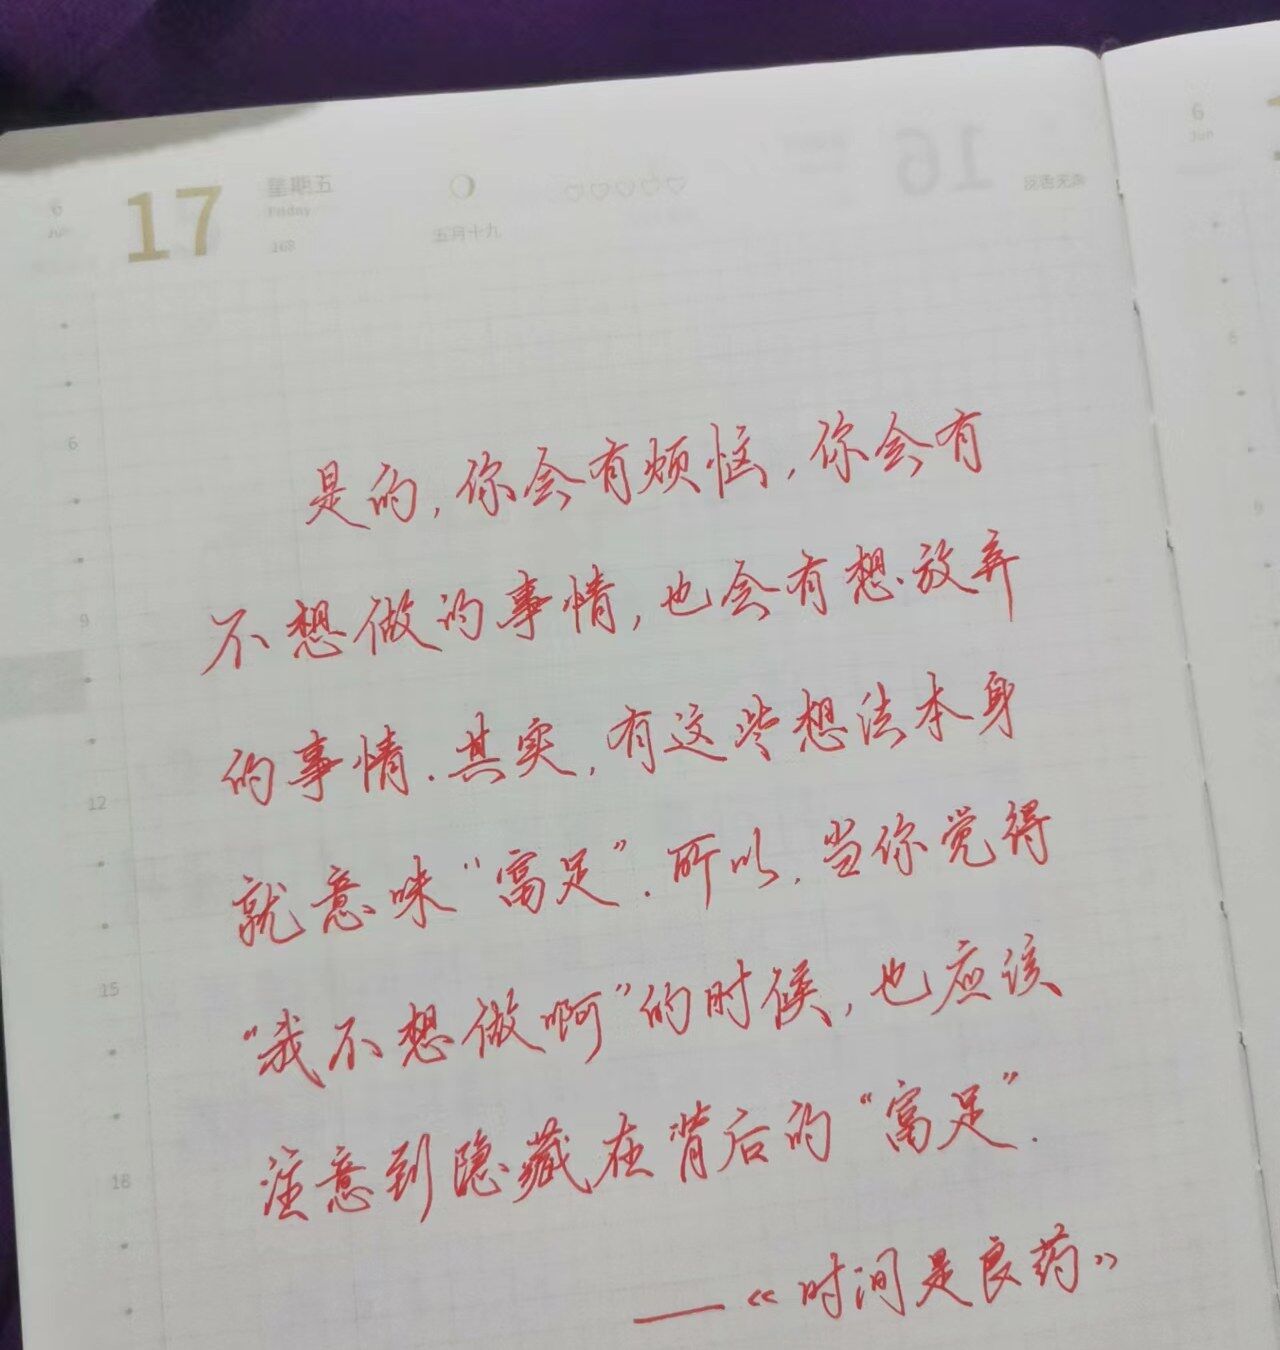 17 星期五
Friday
168
五月十九
6
Jun
16
6
Jun
是的,你会有烦恼,你会有
不想做的事情,也会有想放弃
的事情.其实,有这些想法本身
就意味“富足”.所以,当你觉得
“我不想做啊”的时候,也应该
注意到隐藏在背后的“富足”.
——《时间是良药》
6
9
12
15
18